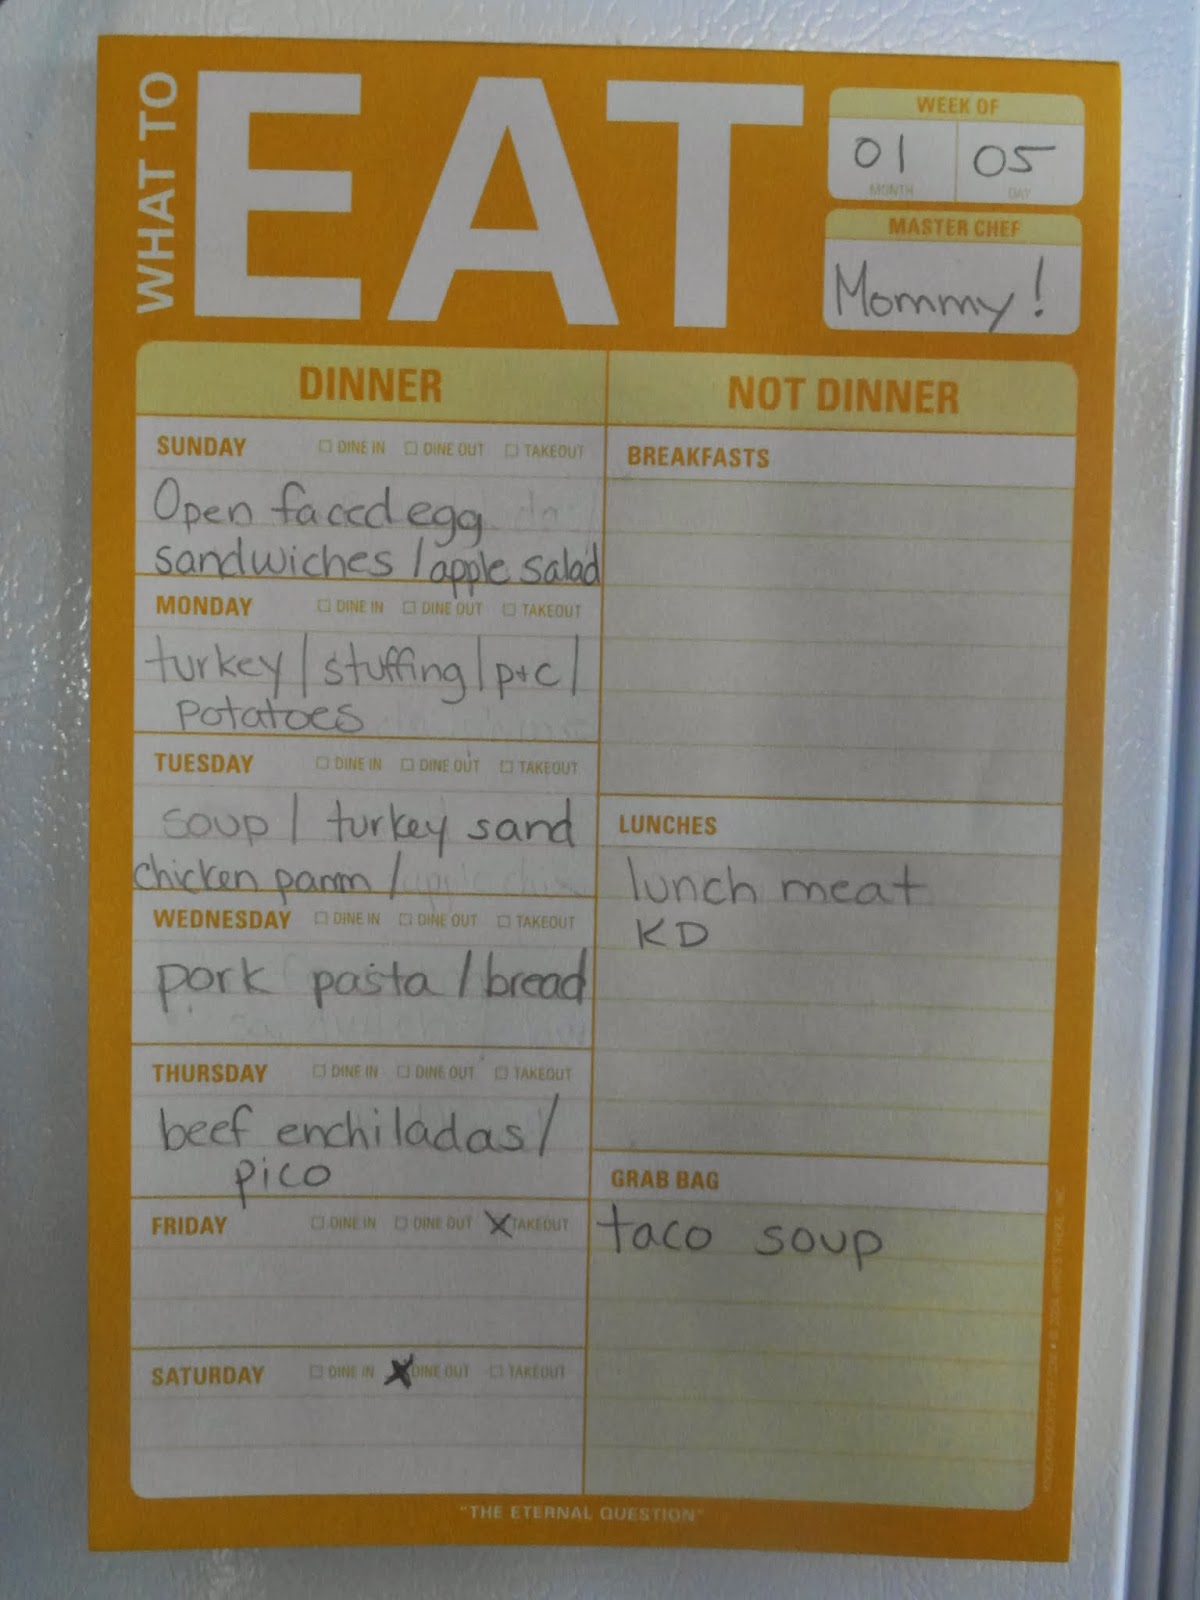 WHAT TO
EAT
WEEK OF
01 05
MONTH DAY
MASTER CHEF
Mommy!
DINNER
SUNDAY DINE IN DINE OUT TAKEOUT
Open faced egg
sandwiches / apple salad
MONDAY DINE IN DINE OUT TAKEOUT
turkey / stuffing / p+c /
potatoes
TUESDAY DINE IN DINE OUT TAKEOUT
soup / turkey sand
chicken parm /
WEDNESDAY DINE IN DINE OUT TAKEOUT
pork pasta / bread
THURSDAY DINE IN DINE OUT TAKEOUT
beef enchiladas /
pico
FRIDAY DINE IN DINE OUT X TAKEOUT
SATURDAY DINE IN X DINE OUT TAKEOUT
NOT DINNER
BREAKFASTS
LUNCHES
lunch meat
KD
GRAB BAG
taco soup
"THE ETERNAL QUESTION"